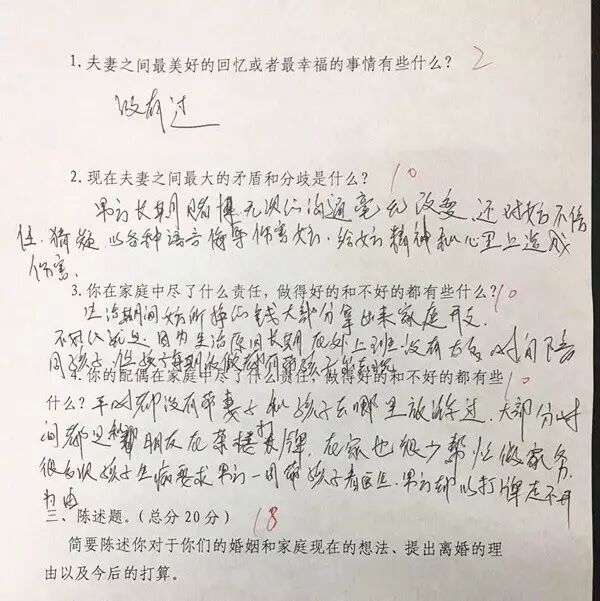 1.夫妻之间最美好的回忆或者最幸福的事情有些什么? 2
没有过
2.现在夫妻之间最大的矛盾和分歧是什么? 10
男方长期赌博无次沟通毫无改变,还对女方不信
任.猜疑.以各种语言侮辱伤害女方.给女方精神和心里上造成
伤害.
3.你在家庭中尽了什么责任,做得好的和不好的都有些什么? 10
生活期间女方所挣的钱大部分拿出来家庭开支.
不好的就是因为生活原因长期在外上班没有太多时间陪
同孩子.
4.你的配偶在家庭中尽了什么责任,做得好的和不好的都有些 10
什么? 平时都没有带妻子和孩子去哪里放游过.大部分时
间都是和朋友在茶楼打牌.在家也很少帮忙做家务.
很多次孩子生病要求男方一同带孩子看医生.男方都以打牌走不开
为由
三、陈述题。(总分20分) 18
简要陈述你对于你们的婚姻和家庭现在的想法、提出离婚的理
由以及今后的打算。